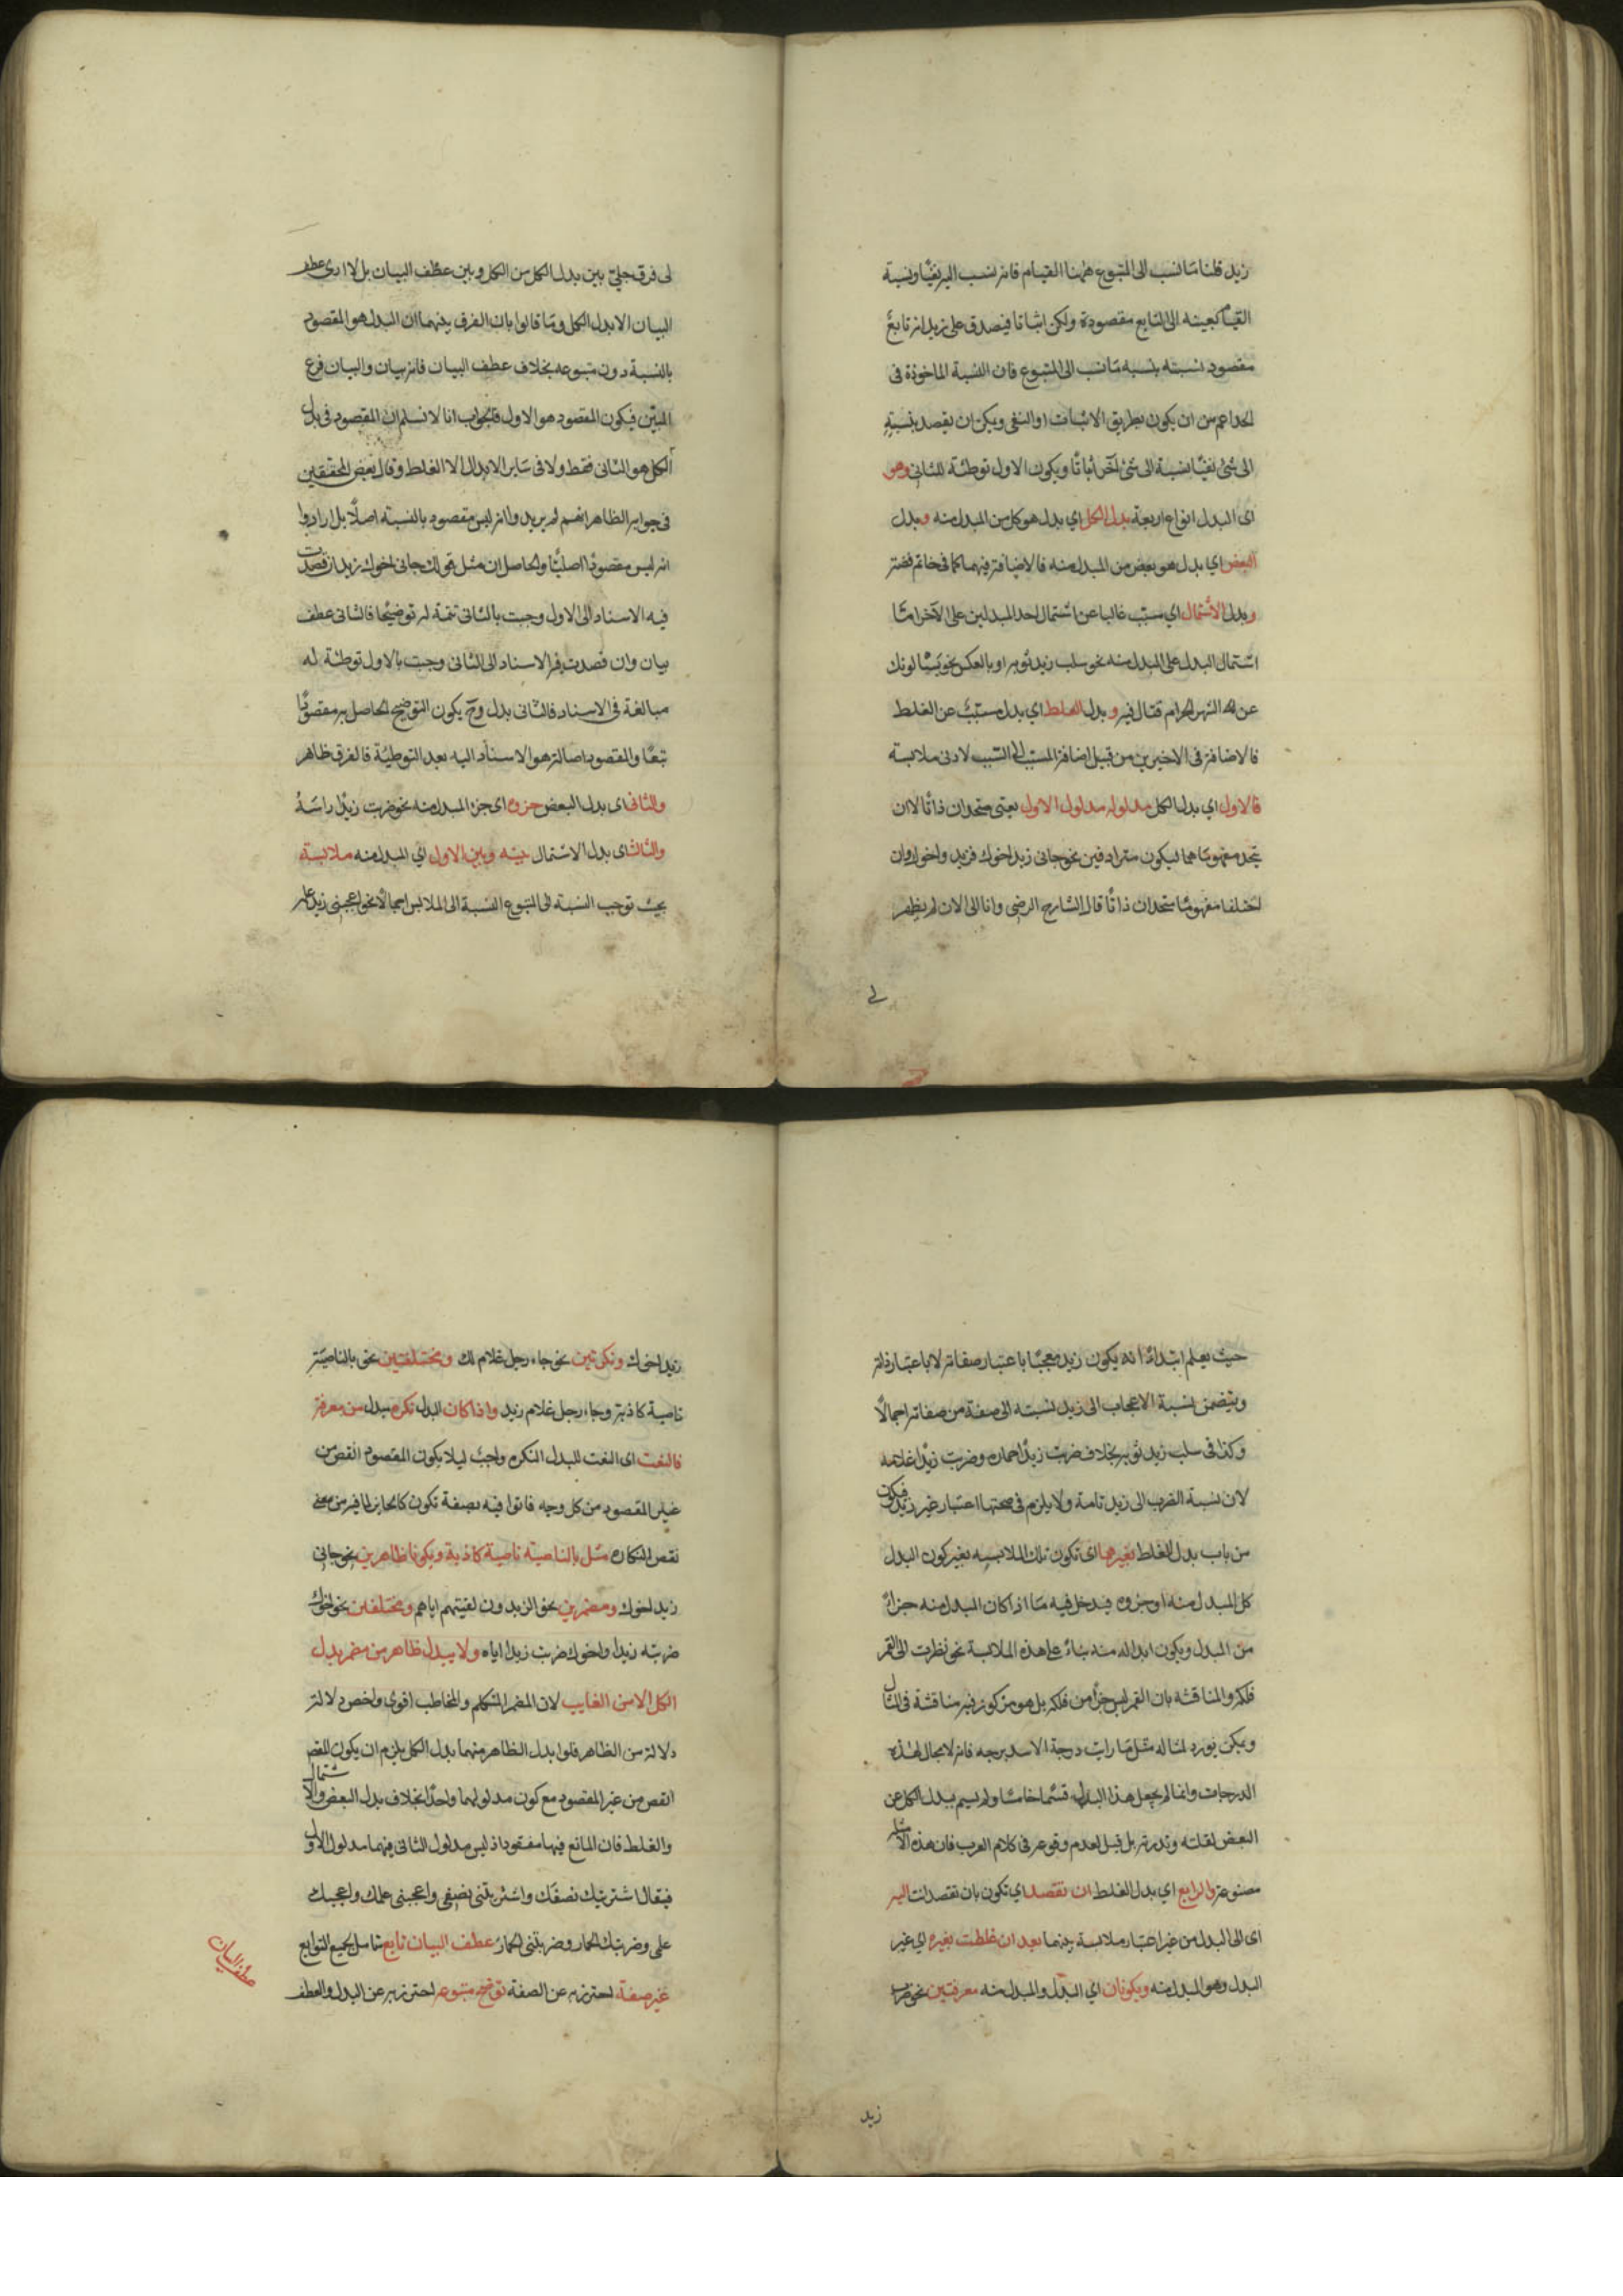 زيد قلنا ما نسب الى المتبوع ههنا القيام فانه نسب اليه نفيًا ونسبة
القيام بعينه الى التابع مقصودة ولكن اثباتا فيصدق على زيد انه تابع
مقصود نسبته بنسبه ما نسب الى المتبوع فان النسبة الماخوذة فى
الحد اعم من ان يكون بطريق الاثبات او النفى ويمكن ان يقصد بنسبته
الى شئ نفيًا نسبة الى شئ آخر اثباتًا ويكون الاول توطئة للثانى وهو
اى البدل انواع اربعة بدل الكل اي بدل هو كل من المبدل منه وبدل
البعض اي بدل هو بعض من المبدل منه فالاضافة فيهما كما فى خاتم فضة
وبدل الاشتمال اي مسبب غالبا عن اشتمال احد المبدلين على الآخر امّا
اشتمال البدل على المبدل منه نحو سلب زيد ثوبه او بالعكس نحو يسئلونك
عن الشهر الحرام قتال فيه وبدل الغلط اي بدل مسبّب عن الغلط
فالاضافة فى الاخيرين من قبيل اضافة المسبب الى السبب لادنى ملابسة
فالاول اي بدل الكل مدلوله مدلول الاول يعنى متحدان ذاتًا لا ان
يتحد مفهوماهما ليكون مترادفين نحو جانى زيد اخوك فزيد واخوك وان
اختلفا مفهومًا متحدان ذاتًا قال الشارح الرضى وانا الى الان لم يظهر
لى
لى فرق جليّ بين بدل الكل من الكل وبين عطف البيان بل لا ارى عطف
البيان الا بدل الكل وما قالوا بان الفرق بينهما ان البدل هو المقصود
بالنسبة دون متبوعه بخلاف عطف البيان فانه بيان والبيان فرع
المبيّن فيكون المقصود هو الاول فالجواب انا لا نسلم ان المقصود فى بدل
الكل هو الثانى فقط ولا فى ساير الابدال الا الغلط وقال بعض المحققين
فى جوابه الظاهر انهم لم يريدوا انه ليس مقصود بالنسبة اصلًا بل ارادوا
انه ليس مقصودًا اصليًّا والحاصل ان مثل قولك جانى اخوك زيد ان قصدت
فيه الاسناد الى الاول وجبت بالثانى تتمة له توضيحًا فالثانى عطف
بيان وان قصدت فيه الاسناد الى الثانى وجبت بالاول توطئة له
مبالغة فى الاسناد فالثانى بدل وح يكون التوضيح الحاصل به مقصودًا
تبعًا والمقصود اصالة هو الاسناد اليه بعد التوطيئة فالفرق ظاهر
والثانى اى بدل البعض جزؤه اى جزء المبدل منه نحو ضربت زيدًا راسَهُ
والثالث اى بدل الاشتمال بينه وبين الاول اي المبدل منه ملابسة
بحيث توجب النسبة الى المتبوع النسبة الى الملابس اجمالًا نحو اعجبنى زيد علمه
حيث يعلم ابتداءً انه يكون زيد معجبًا باعتبار صفاته لا باعتبار ذاته
ويتضمن نسبة الاعجاب الى زيد نسبته الى صفة من صفاته اجمالًا
وكذا فى سلب زيد ثوبه بخلاف ضربت زيدًا حماره وضربت زيدًا غلامه
لان نسبة الضرب الى زيد تامة ولا يلزم فى صحتها اعتبار غير زيد فيكون
من باب بدل الغلط بغيرهما اى تكون تلك الملابسه بغير كون البدل
كل المبدل منه او جزؤه فيدخل فيه ما اذا كان المبدل منه جزأً
من البدل ويكون ابداله منه بناءً على هذه الملابسة نحو نظرت الى القمر
فلكه والمناقشة بان القمر ليس جزأ من فلكه بل هو مركوز فيه مناقشة فى المثال
ويمكن يورد لمثاله مثل ما رايت درجة الاسد برجه فانه لا مجال لهذه
الدرجات وانما لم يجعل هذا البدل قسمًا خامسًا ولم يسم ببدل الكل عن
البعض لقلته وندرته بل قيل لعدم وقوعه فى كلام العرب فان هذه الامثلة
مصنوعة والرابع اي بدل الغلط ان تقصد اي تكون بان تقصد انت اليه
اى الى البدل من غير اعتبار ملابسة بينهما بعد ان غلطت بغيره اي غير
البدل وهو المبدل منه ويكونان اي البدل والمبدل منه معرفتين نحو ضرب
زيد
زيد اخوك ونكرتين نحو جاء رجل غلام لك ومختلفتين نحو بالناصية
ناصية كاذبة وجاء رجل غلام زيد واذا كان البدل نكره مبدل من معرفة
فالنعت اى النعت للبدل النكره واجب ليلا يكون المقصود انقص من
غير المقصود من كل وجه فاتوا فيه بصفة تكون كالجابر لما فيه من معنى
نقص النكاره مثل بالناصية ناصية كاذبة ويكونا ظاهرين نحو جانى
زيد اخوك ومضمرين نحو الزيدون لقيتهم اياهم ومختلفين نحو اخوك
ضربته زيدا واخوك ضربت زيدا اياه ولا يبدل ظاهر من مضمر بدل
الكل الا من الغايب لان المضمر المتكلم والمخاطب اقوى واخص دلالة
دلالة من الظاهر فلو ابدل الظاهر منهما بدل الكل يلزم ان يكون المقصود
انقص من غير المقصود مع كون مدلولهما واحدًا بخلاف بدل البعض والاشتمال
والغلط فان المانع فيها مفقود اذ ليس مدلول الثانى فيهما مدلول الاول
فيقال اشتريتك نصفك واشتريتنى نصفى واعجبنى علمك واعجبك
علمى وضربتك الحمار وضربتنى الحمار عطف البيان تابع شامل لجميع التوابع
غير صفة احترز به عن الصفة توضح متبوعه احترز به عن البدل والعطف
عطف البيان